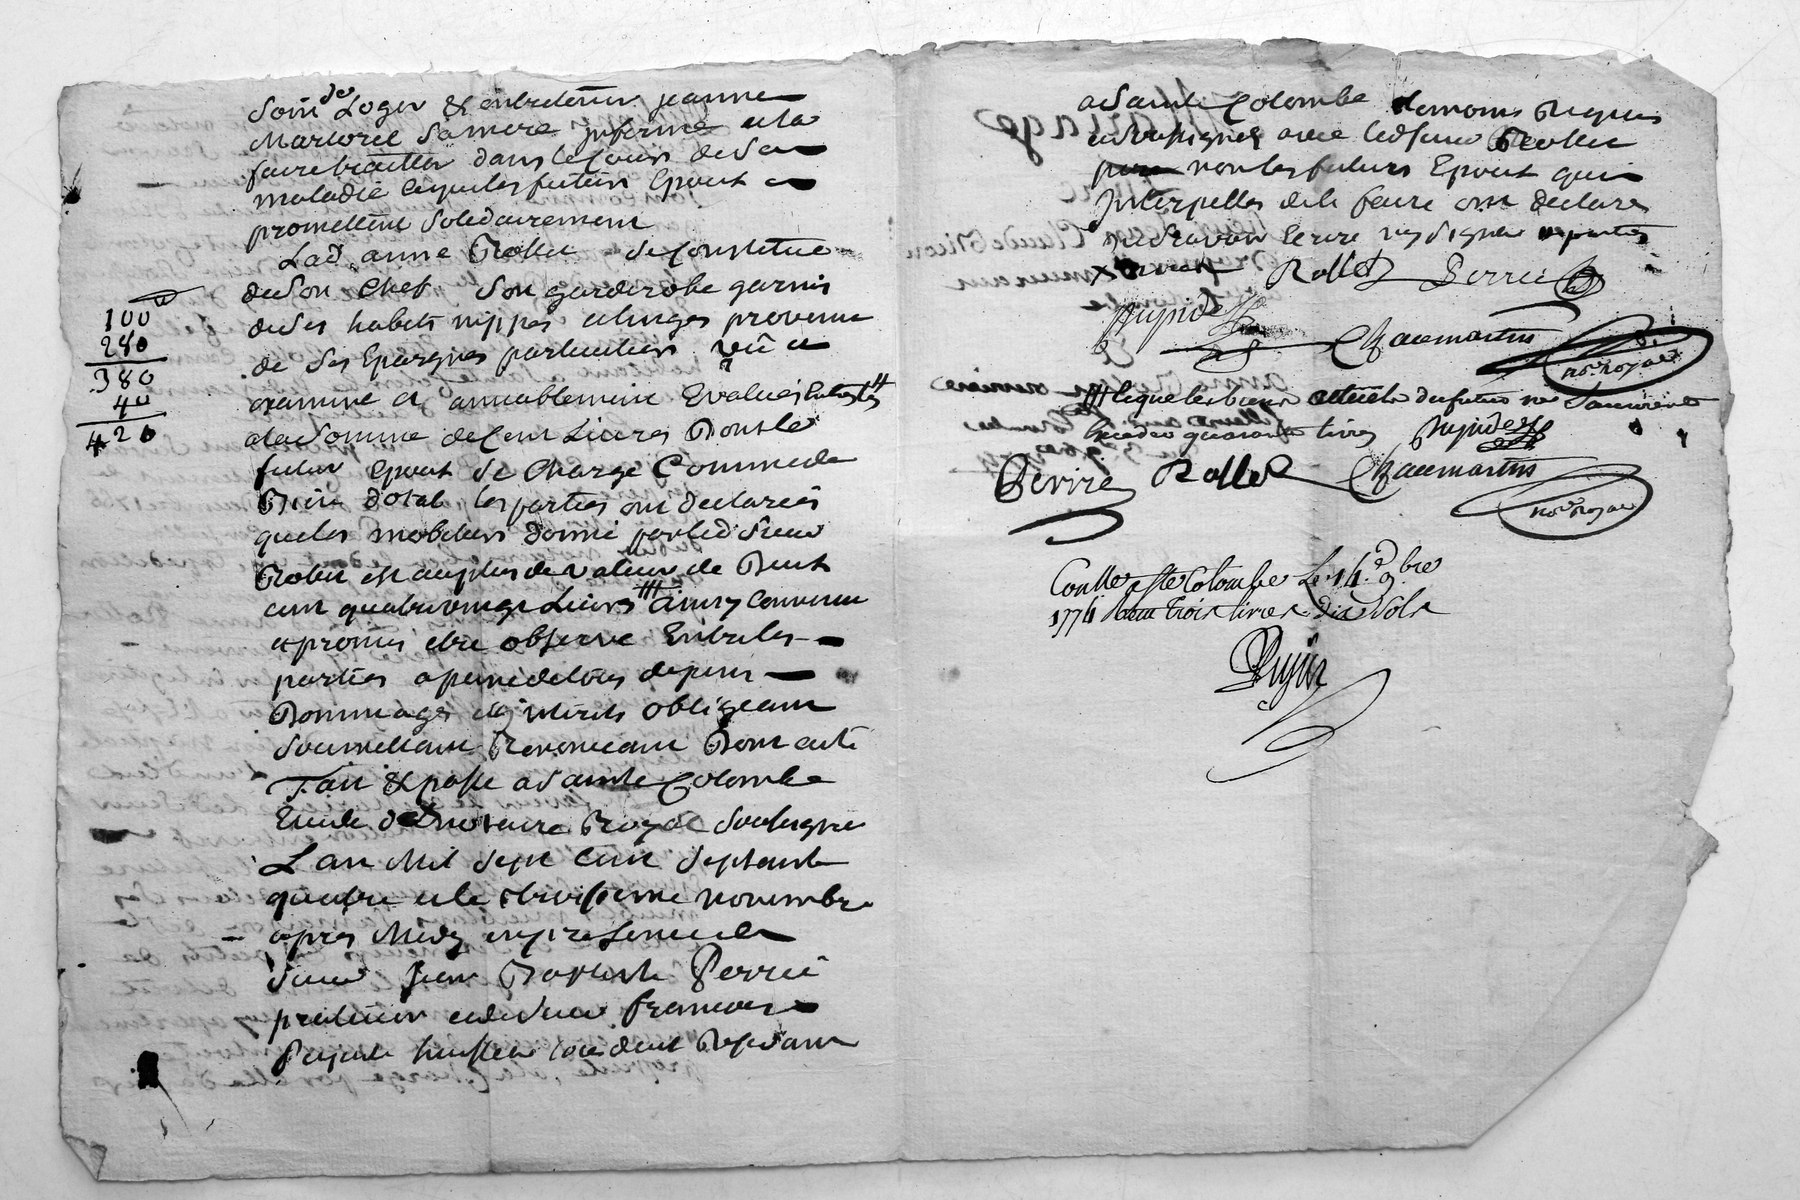 Soin de Loger & entretenir jeanne
Martorel sa mere infirme et la
faire traitter dans le cours de sa
maladie ce que les futurs Epoux
promettent solidairement
Lad. anne Rollet se constitue
de son Chef son garderobe garnis
de ses habits nippes et linges provenu
de ses Epargnes particuliers vû et
examiné et amiablement Evalués Entre les
a la somme de Cent Livres Dont le
futur Epoux se Charge Comme de
Bien dotal les parties ont declarés
que les mobiliers donné par led sieur
Rollet est au plus de valeur de Deux
cent quatre vingt Livres ainsy Convenu
et promis etre observé Entre les
parties a peine de tous depens
Dommages et interets obligeant
soumettant Renonceant Dont acte
Fait & passé a Sainte Colombe
Etude du notaire Royal soubsigné
L'an Mil sept Cent septante
quatre et le troisieme novembre
apres Midy en presence de
sieur Jean Baptiste Perrié
praticien et de sieur francois
huissier residant
100
280
380
40
420
a Sainte Colombe temoins Requis
et soussignés avec led sieur Rollet
non les futurs Epoux qui
Interpellés de le faire ont declaré
ne scavoir Ecrire ny signer
Rollet Perrié
Chaumartin
not. royal
/// et que les biens actuels du futur ne
quarante livres
Perrié Rollet Chaumartin
not. royal
Con.lle a Ste Colombe Le 14 9.bre
1774 trois livres dix sols